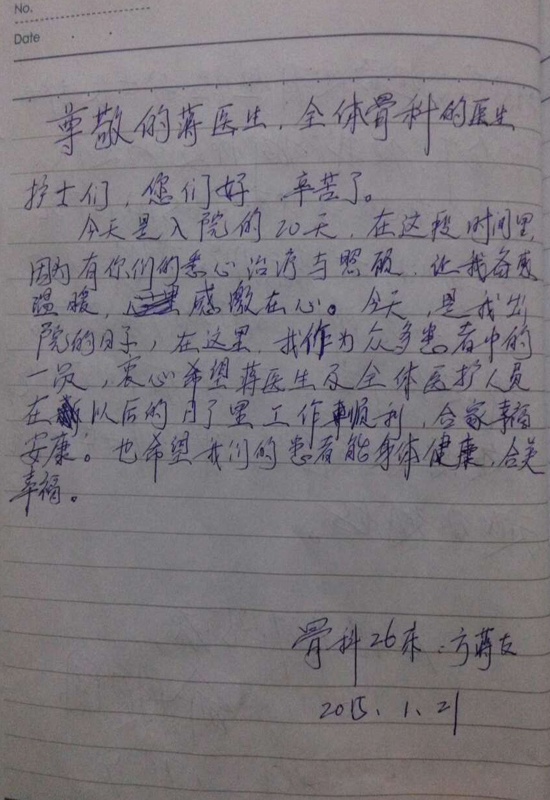 No.
Date
尊敬的蒋医生，全体骨科的医生
护士们，您们好，辛苦了。
今天是入院的20天，在这段时间里
因为有你们的悉心治疗与照顾，让我备感
温暖，感激在心。今天，是我出
院的日子，在这里，我作为众多患者中的
一员，衷心希望蒋医生及全体医护人员
在以后的日子里工作顺利，合家幸福
安康。也希望我们的患者能身体健康，合美
幸福。
骨科26床：方蒋友
2015.1.21